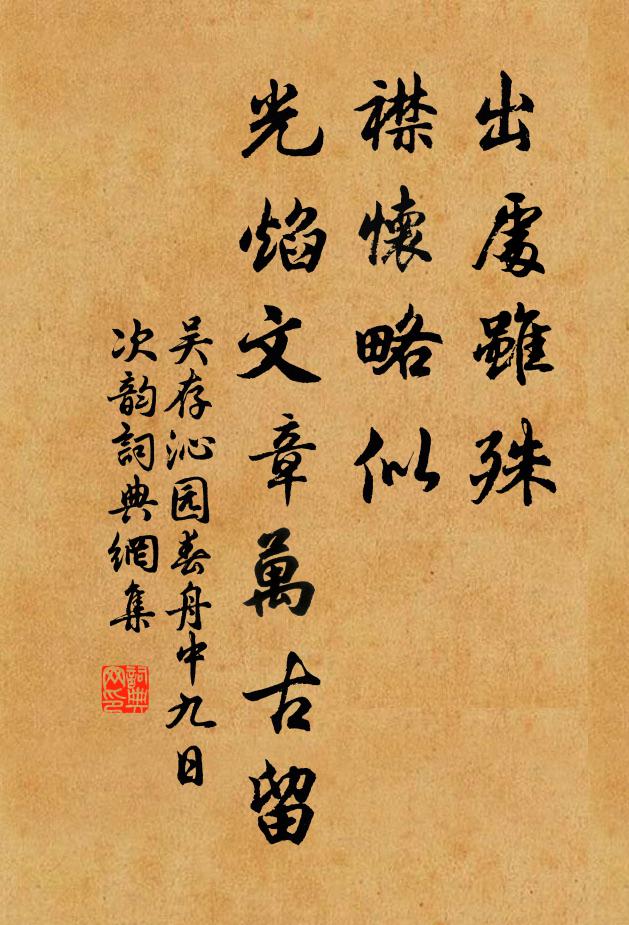 出處雖殊
襟懷略似
光焰文章萬古留
吴存沁园春舟中九日
次韵詞典網集
詞典
网印